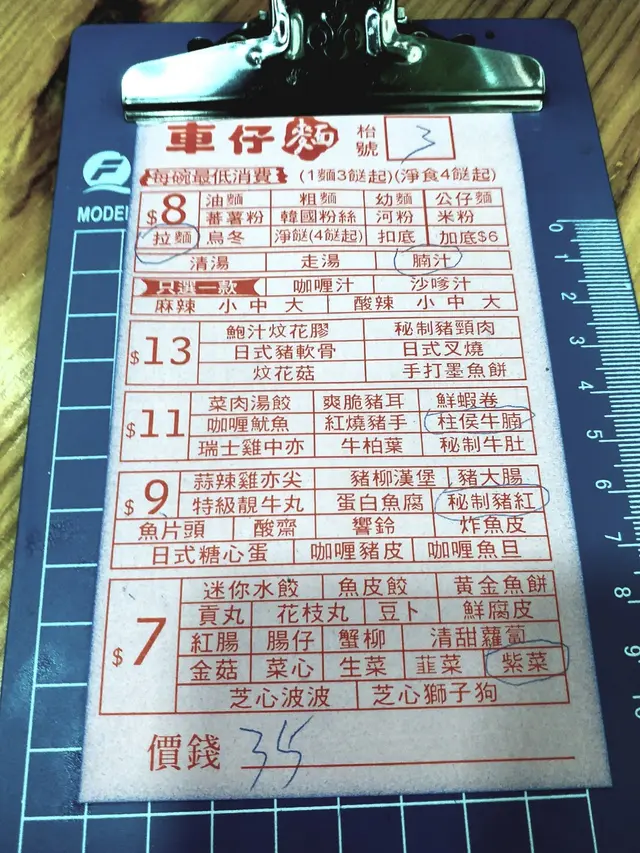 車仔麵 枱號 3
每碗最低消費 (1麵3餸起)(淨食4餸起)
MODEL
$8 油麵 粗麵 幼麵 公仔麵
蕃薯粉 韓國粉絲 河粉 米粉
拉麵 烏冬 淨餸(4餸起) 扣底 加底$6
清湯 走湯 腩汁
只選一款 咖喱汁 沙嗲汁
麻辣 小 中 大 酸辣 小 中 大
$13 鮑汁炆花膠 秘制豬頸肉
日式豬軟骨 日式叉燒
炆花菇 手打墨魚餅
$11 菜肉湯餃 爽脆豬耳 鮮蝦卷
咖喱魷魚 紅燒豬手 柱侯牛腩
瑞士雞中亦 牛柏葉 秘制牛肚
$9 蒜辣雞亦尖 豬柳漢堡 豬大腸
特級靚牛丸 蛋白魚腐 秘制豬紅
魚片頭 酸齋 響鈴 炸魚皮
日式糖心蛋 咖喱豬皮 咖喱魚旦
$7 迷你水餃 魚皮餃 黃金魚餅
貢丸 花枝丸 豆卜 鮮腐皮
紅腸 腸仔 蟹柳 清甜蘿蔔
金菇 菜心 生菜 韮菜 紫菜
芝心波波 芝心獅子狗
價錢 35
0
1
2
3
4
5
6
7
8
9
10